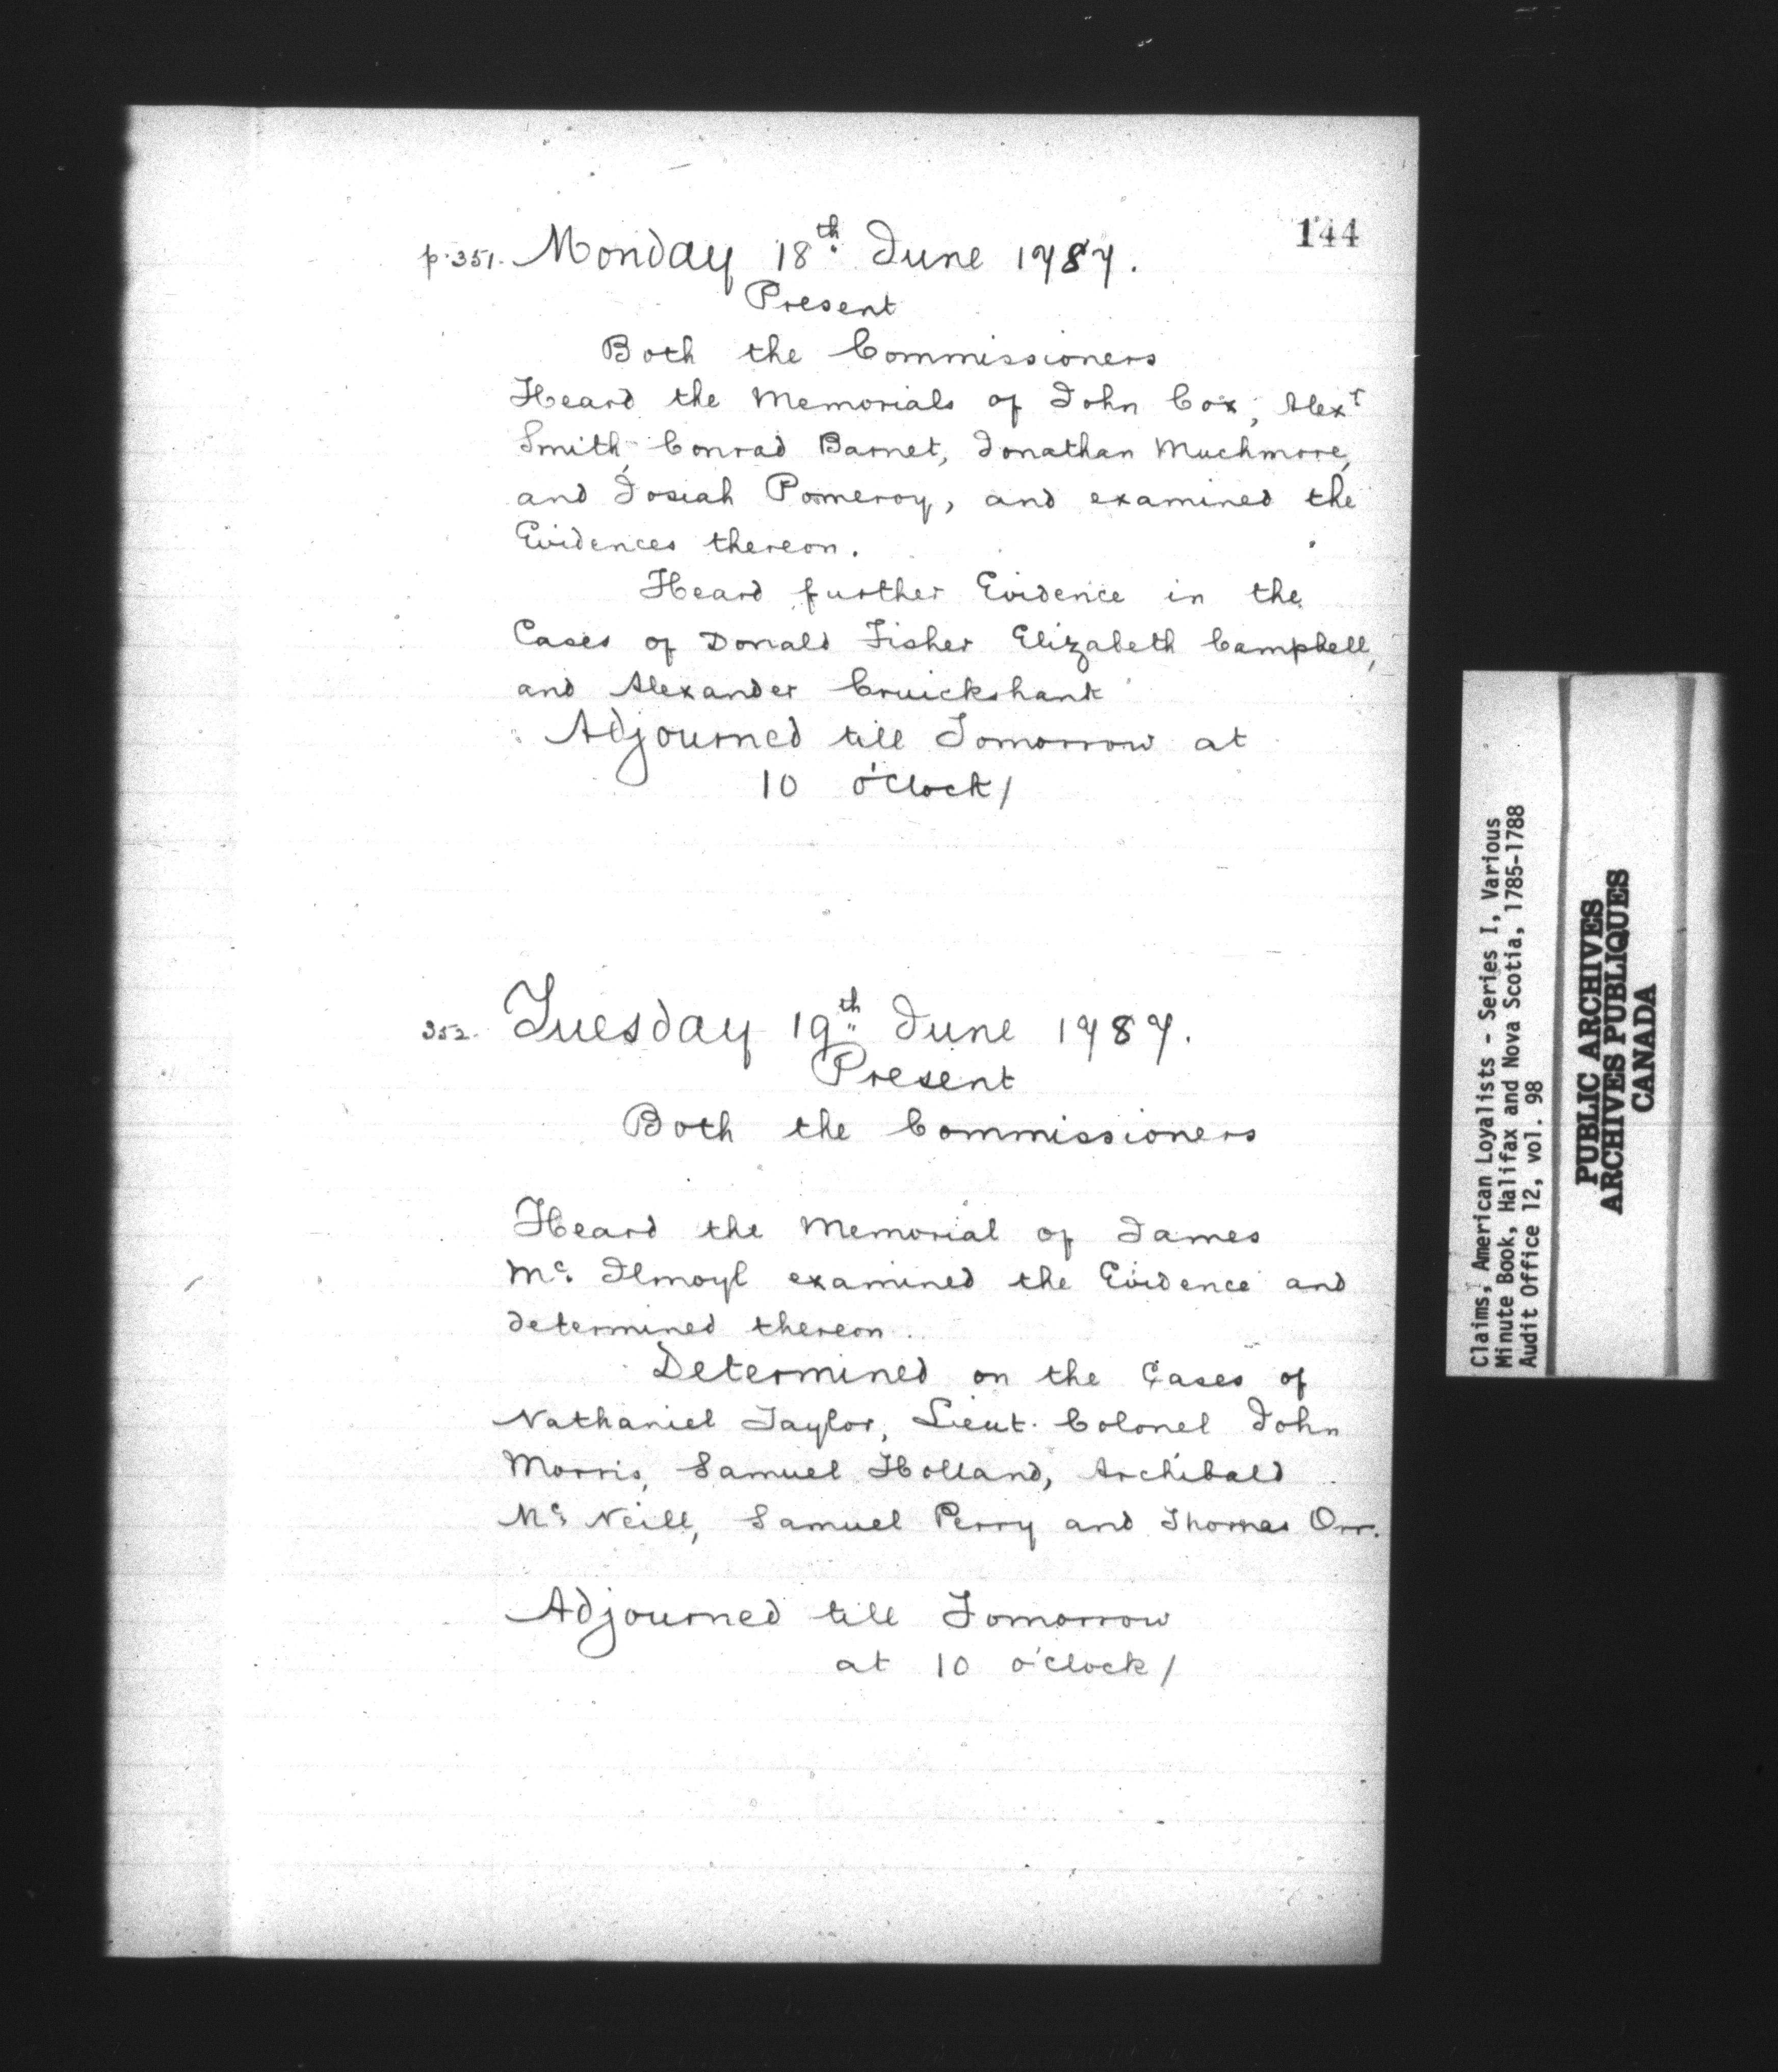 144
p. 351. Monday 18th June 1787.
Present
Both the Commissioners
Heard the Memorials of John Cox, Alexr
Smith, Conrad Barnet, Jonathan Muchmore,
and Josiah Pomeroy, and examined the
Evidences thereon.
Heard further Evidence in the
Cases of Donald Fisher Elizabeth Campbell,
and Alexander Cruickshank
Adjourned till Tomorrow at
10 o'Clock/
352. Tuesday 19th June 1787.
Present
Both the Commissioners
Heard the Memorial of James
Mc. Ilmoyl examined the Evidence and
determined thereon.
Determined on the Cases of
Nathaniel Taylor, Lieut. Colonel John
Morris, Samuel Holland, Archibald
Mc. Neill, Samuel Perry and Thomas Orr.
Adjourned till Tomorrow
at 10 o'Clock/
Claims, American Loyalists - Series I, Various
Minute Book, Halifax and Nova Scotia, 1785-1788
Audit Office 12, vol. 98
PUBLIC ARCHIVES
ARCHIVES PUBLIQUES
CANADA